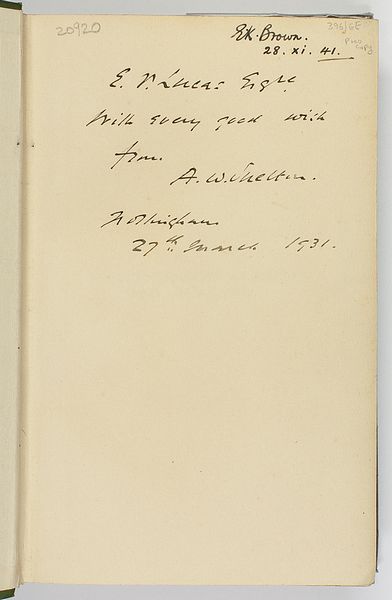 20920
EK Brown.
28. xi. 41.
396/6E
E. V. Lucas Esqre.
With every good wish
from
A. W. Shelton.
Nottingham
27th March 1931.